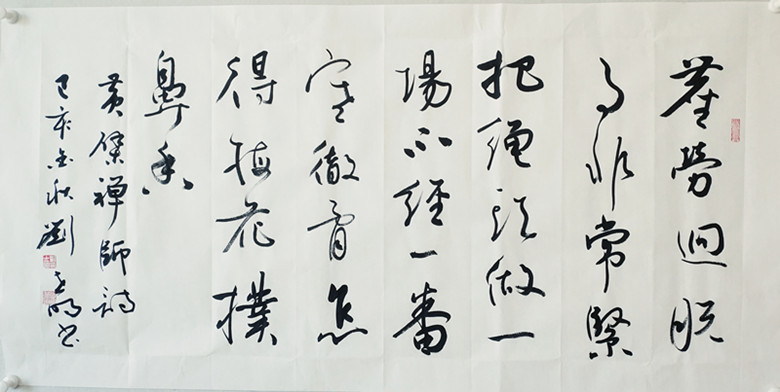 塵勞迥脱
事非常緊
把繩頭做一
場不經一番
寒徹骨怎
得梅花撲
鼻香
黃檗禪師詩
己亥金秋劉明書